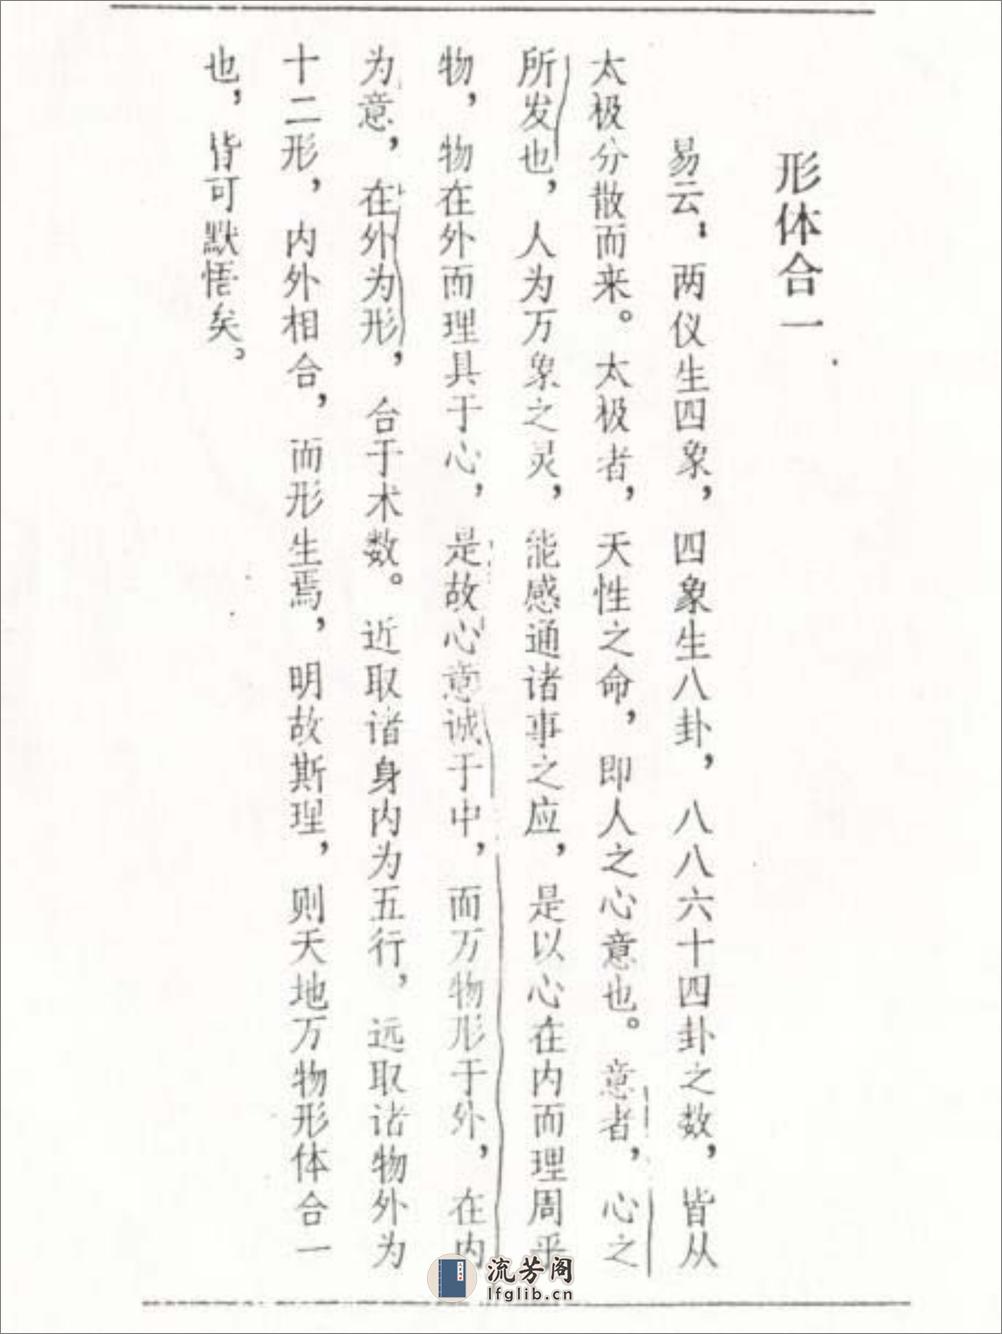 形体合一
易云：两仪生四象，四象生八卦，八八六十四卦之数，皆从
太极分散而来。太极者，天性之命，即人之心意也。意者，心之
所发也，人为万象之灵，能感通诸事之应，是以心在内而理周乎
物，物在外而理具于心，是故心意诚于中，而万物形于外，在内
为意，在外为形，合于术数。近取诸身内为五行，远取诸物外为
十二形，内外相合，而形生焉，明故斯理，则天地万物形体合一
也，皆可默悟矣。
流芳阁
lfglib.cn